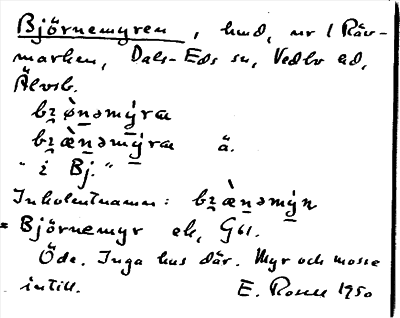 Björnemyren, hmd, nr 1 Räv-
marken, Dals-Eds sn, Vedbo hd,
Älvsb.
bɀ̣ø̀n̲əmý̲ræ
bɀ̣æ̀n̲əmý̲ræ ä.
"i Bj."
Inkolentnamn: bɀ̣æ̀n̲əmý̲n
= Björnemyr ek, Gbl.
Öde. Inga hus där. Myr och mosse
intill. E. Rosell 1950